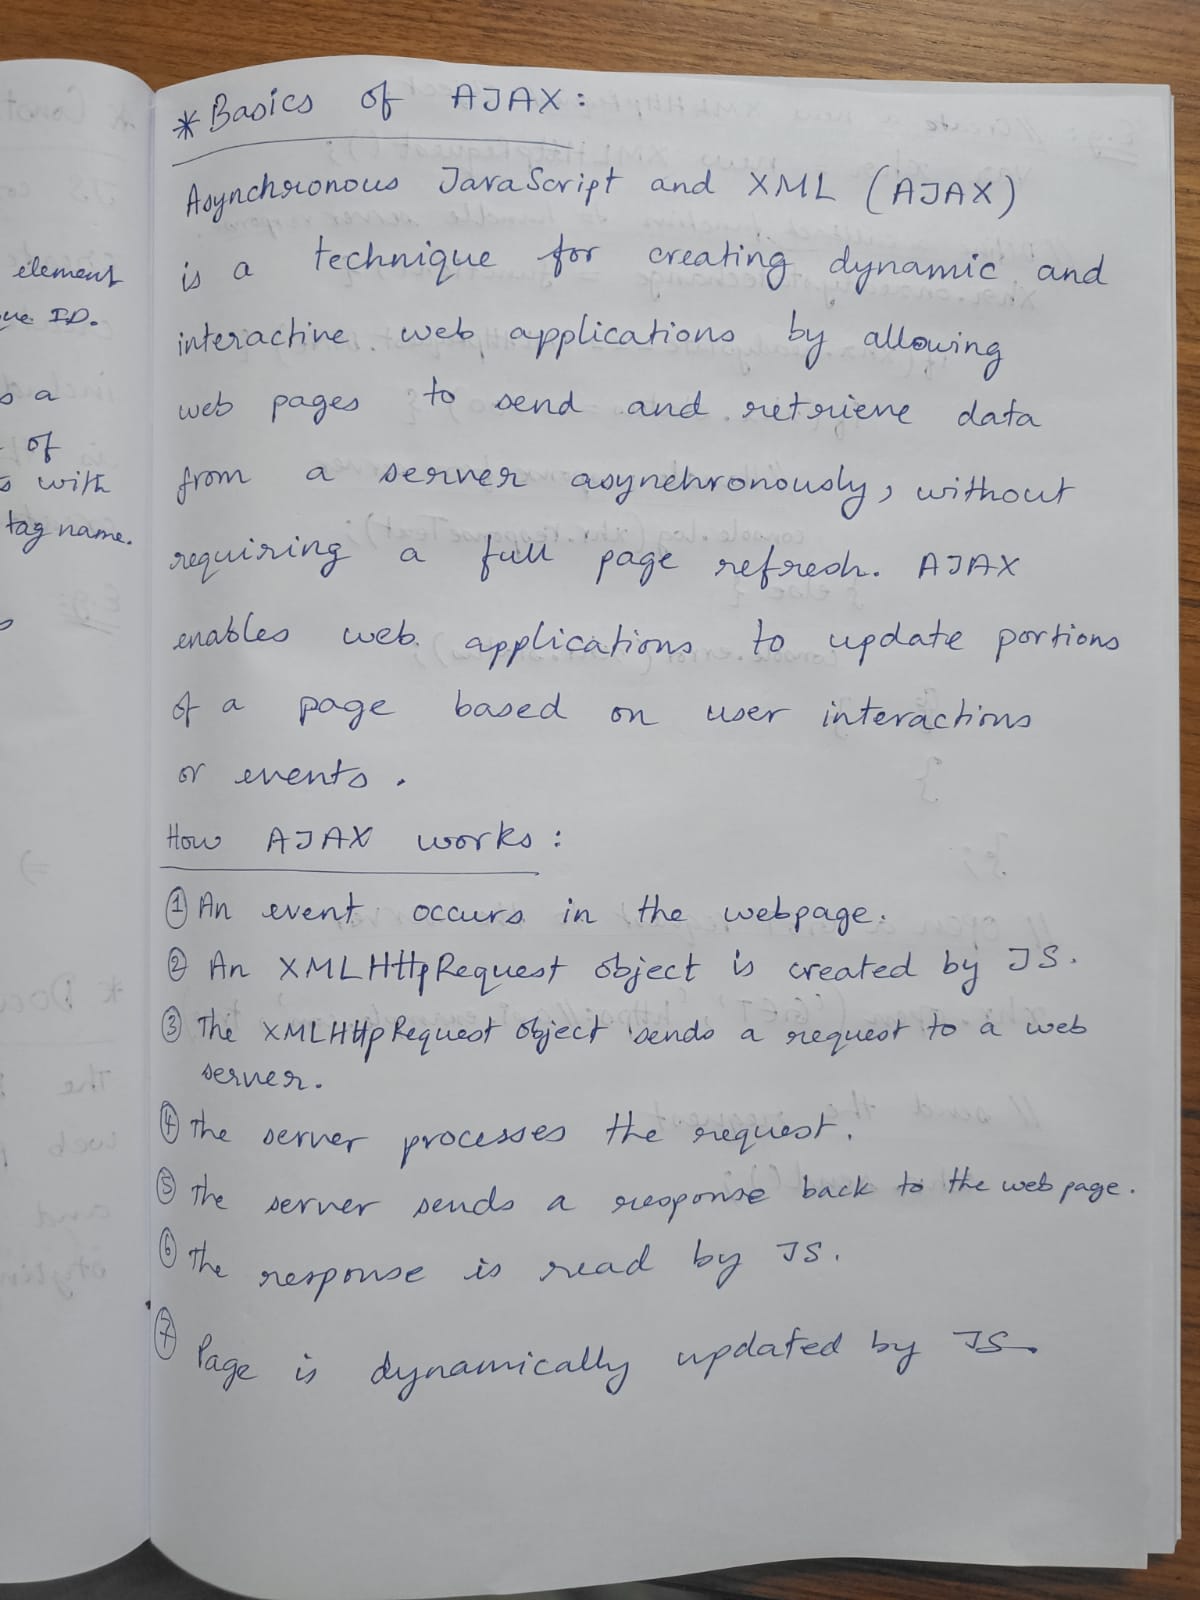 element
ue ID.
s a
of
s with
tag name.
* Basics of AJAX :
Asynchronous JavaScript and XML (AJAX)
is a technique for creating dynamic and
interactive web applications by allowing
web pages to send and retrieve data
from a server asynchronously, without
requiring a full page refresh. AJAX
enables web applications to update portions
of a page based on user interactions
or events.
How AJAX works :
① An event occurs in the webpage.
② An XMLHttpRequest object is created by JS.
③ The XMLHttpRequest object sends a request to a web
server.
④ The server processes the request.
⑤ The server sends a response back to the web page.
⑥ The response is read by JS.
⑦ Page is dynamically updated by JS.